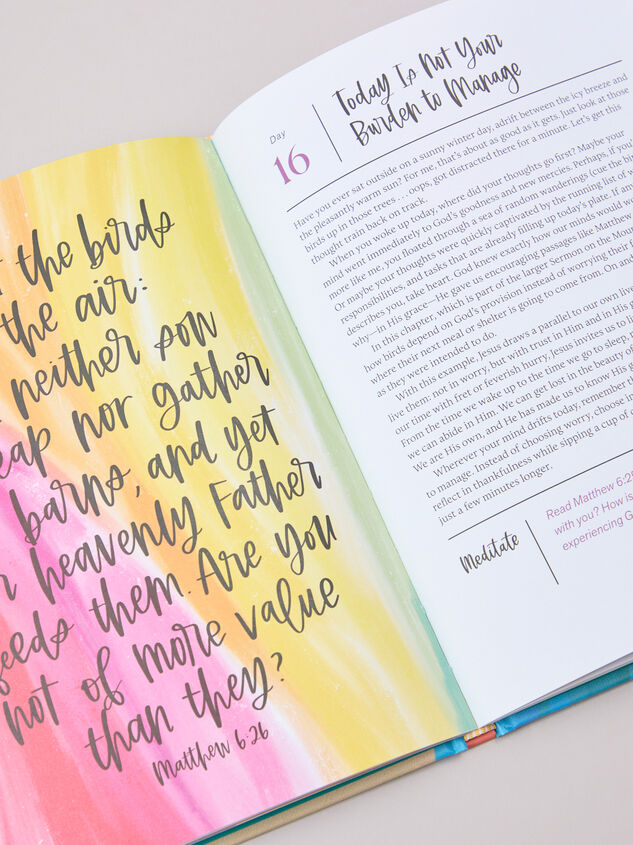 the birds
the air:
neither sow
nor gather
barns, and yet
heavenly Father
feeds them. Are you
not of more value
than they?
Matthew 6:26
Day
16
Today Is Not Your
Burden to Manage
Have you ever sat outside on a sunny winter day, adrift between the icy breeze and
the pleasantly warm sun? For me, that's about as good as it gets. Just look at those
birds up in those trees . . . oops, got distracted there for a minute. Let's get this
thought train back on track.
When you woke up today, where did your thoughts go first? Maybe your
mind went immediately to God's goodness and new mercies. Perhaps, if you
more like me, you floated through a sea of random wanderings (cue the bi
Or maybe your thoughts were quickly captivated by the running list of w
responsibilities, and tasks that are already filling up today's plate. If am
describes you, take heart. God knew exactly how our minds would wa
why—in His grace—He gave us encouraging passages like Matthew
In this chapter, which is part of the larger Sermon on the Moun
how birds depend on God's provision instead of worrying their
where their next meal or shelter is going to come from. On and
as they were intended to do.
With this example, Jesus draws a parallel to our own live
live them: not in worry, but with trust in Him and in His
our time with fret or feverish hurry, Jesus invites us to l
From the time we wake up to the time we go to sleep,
we can abide in Him. We can get lost in the beauty of
We are His own, and He has made us to know His g
Wherever your mind drifts today, remember t
to manage. Instead of choosing worry, choose in
reflect in thankfulness while sipping a cup of
just a few minutes longer.
Meditate
Read Matthew 6:25
with you? How is
experiencing G